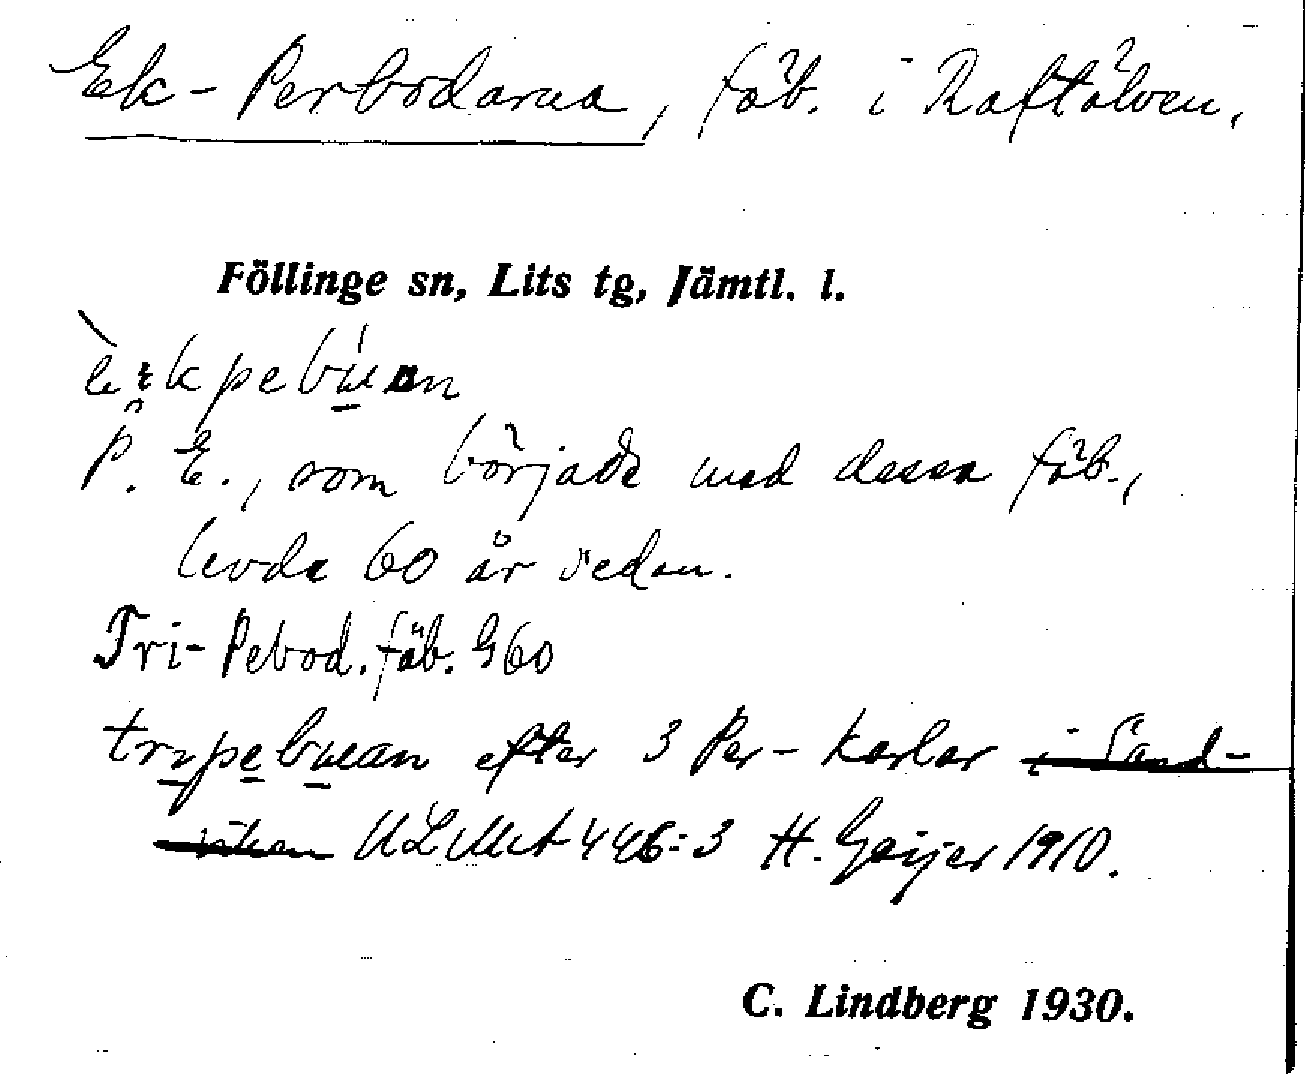 Ek-Perbodarna, fäb. i Raftälven,
Föllinge sn, Lits tg, Jämtl. l.
P. E., som började med dessa fäb.,
levde 60 år sedan.
Tri-Pebod. fäb. G60
tripebuan efter 3 Per-karlar i Sand-
viken ULMA 446:3 H. Geijer 1910.
C. Lindberg 1930.